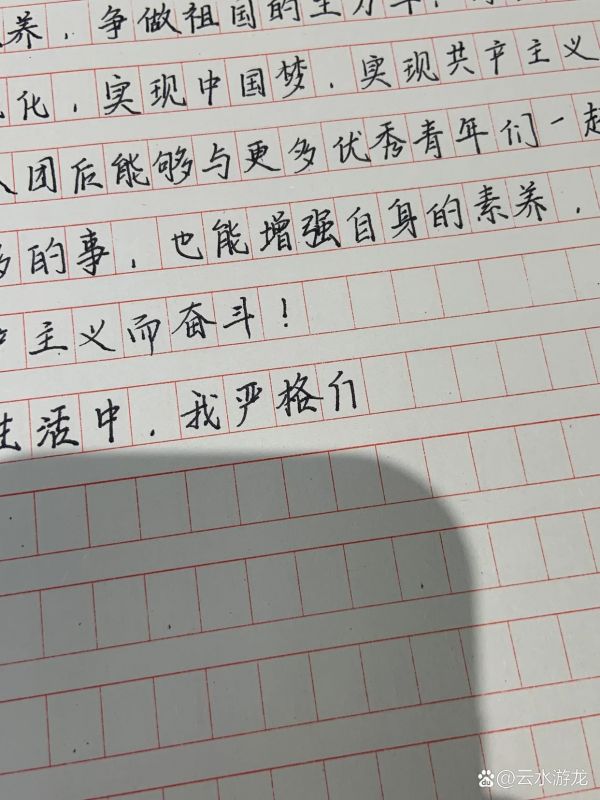 养，争做祖国的主力军，
化，实现中国梦，实现共产主义
团后能够与更多优秀青年们一起
的事，也能增强自身的素养，
主义而奋斗！
生活中，我严格
@云水游龙